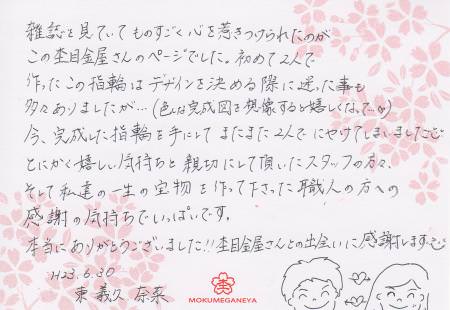 雑誌を見ていてものすごく心を惹きつけられたのが
この杢目金屋さんのページでした。初めて2人で
作ったこの指輪はデザインを決める際に迷った事も
多々ありましたが…(色んな完成図を想像すると嬉しくなって…♡)
今、完成した指輪を手にして またまた2人で にやけてしまいました
とにかく嬉しい気持ちと 親切にして頂いたスタッフの方々、
そして私達の一生の宝物を作って下さった職人の方への
感謝の気持ちでいっぱいです。
本当にありがとうございました!!杢目金屋さんとの出会いに感謝します
H23.6.30
東 義久 奈菜
MOKUMEGANEYA